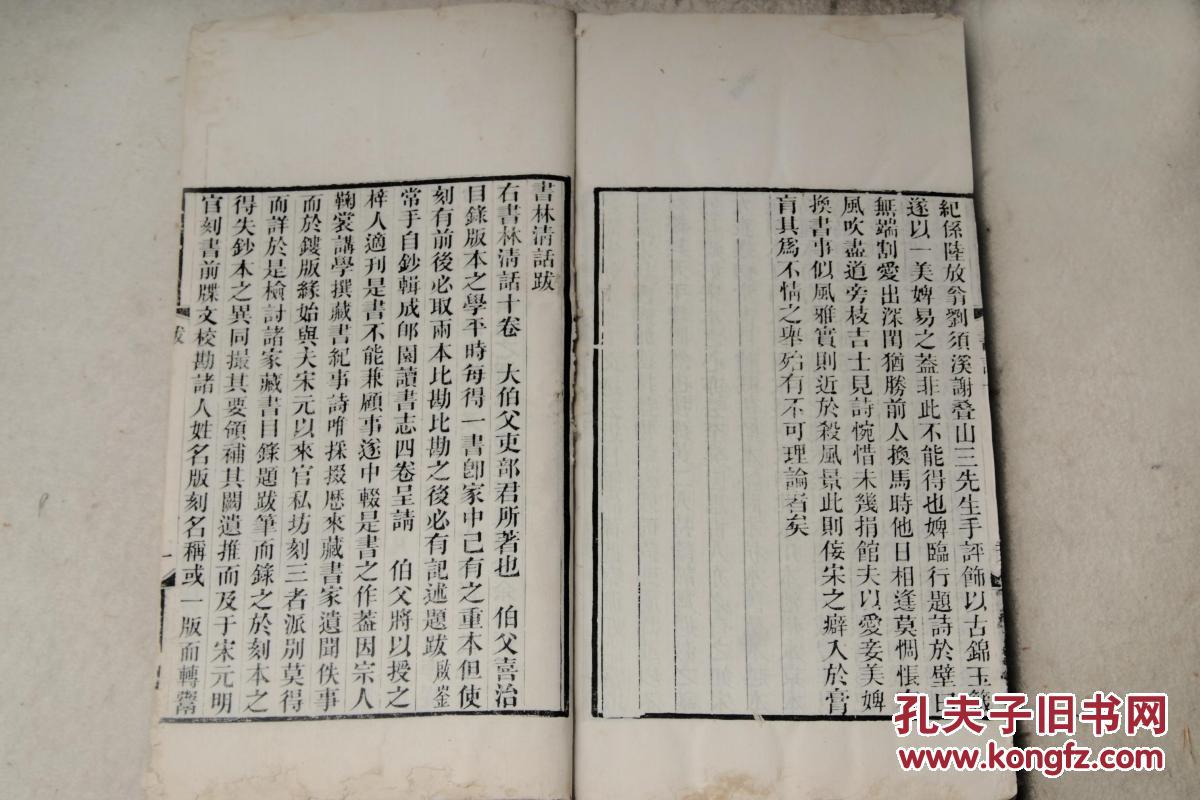 紀係陸放翁劉須溪謝疊山三先生手評飾以古錦玉籤
遂以一美婢易之蓋非此不能得也婢臨行題詩於壁曰
無端割愛出深閨猶勝前人換馬時他日相逢莫惆悵
風吹盡道旁枝吉士見詩惋惜未幾捐館夫以愛妾美婢
換書事似風雅實則近於殺風景此則佞宋之癖入於膏
肓其爲不情之舉殆有不可理論者矣
書林清話跋
右書林清話十卷 大伯父吏部君所著也 伯父喜治
目錄版本之學平時每得一書卽家中已有之重本但使
刻有前後必取兩本比勘比勘之後必有記述題跋啟崟
常手自鈔輯成郋園讀書志四卷呈請 伯父將以授之
梓人適刊是書不能兼顧事遂中輟是書之作蓋因宗人
鞠裳講學撰藏書紀事詩唯採掇歷來藏書家遺聞佚事
而於鏤版緣始與夫宋元以來官私坊刻三者派別莫得
而詳於是檢討諸家藏書目錄題跋筆而錄之於刻本之
得失鈔本之異同撮其要領補其闕遺推而及于宋元明
官刻書前牒文校勘諸人姓名版刻名稱或一版而轉鬻
跋
一
孔夫子旧书网
www.kongfz.com